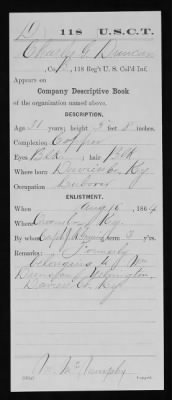 D 118 U.S.C.T.
Charly G Duncan
, Co. , 118 Reg't U. S. Col'd Inf.
Appears on
Company Descriptive Book
of the organization named above.
DESCRIPTION.
Age 31 years; height 5 feet 8 inches.
Complexion Copper
Eyes Blk, hair Blk
Where born Daviess Co, Ky.
Occupation Laborer
ENLISTMENT.
When Aug 16, 1864
Where Owensboro, Ky.
By whom Capt J R Grissom; term 3 y'rs.
Remarks: Formerly
belonging to Wm
Duncan of
Daviess Co Ky
Murphy
Copyist.